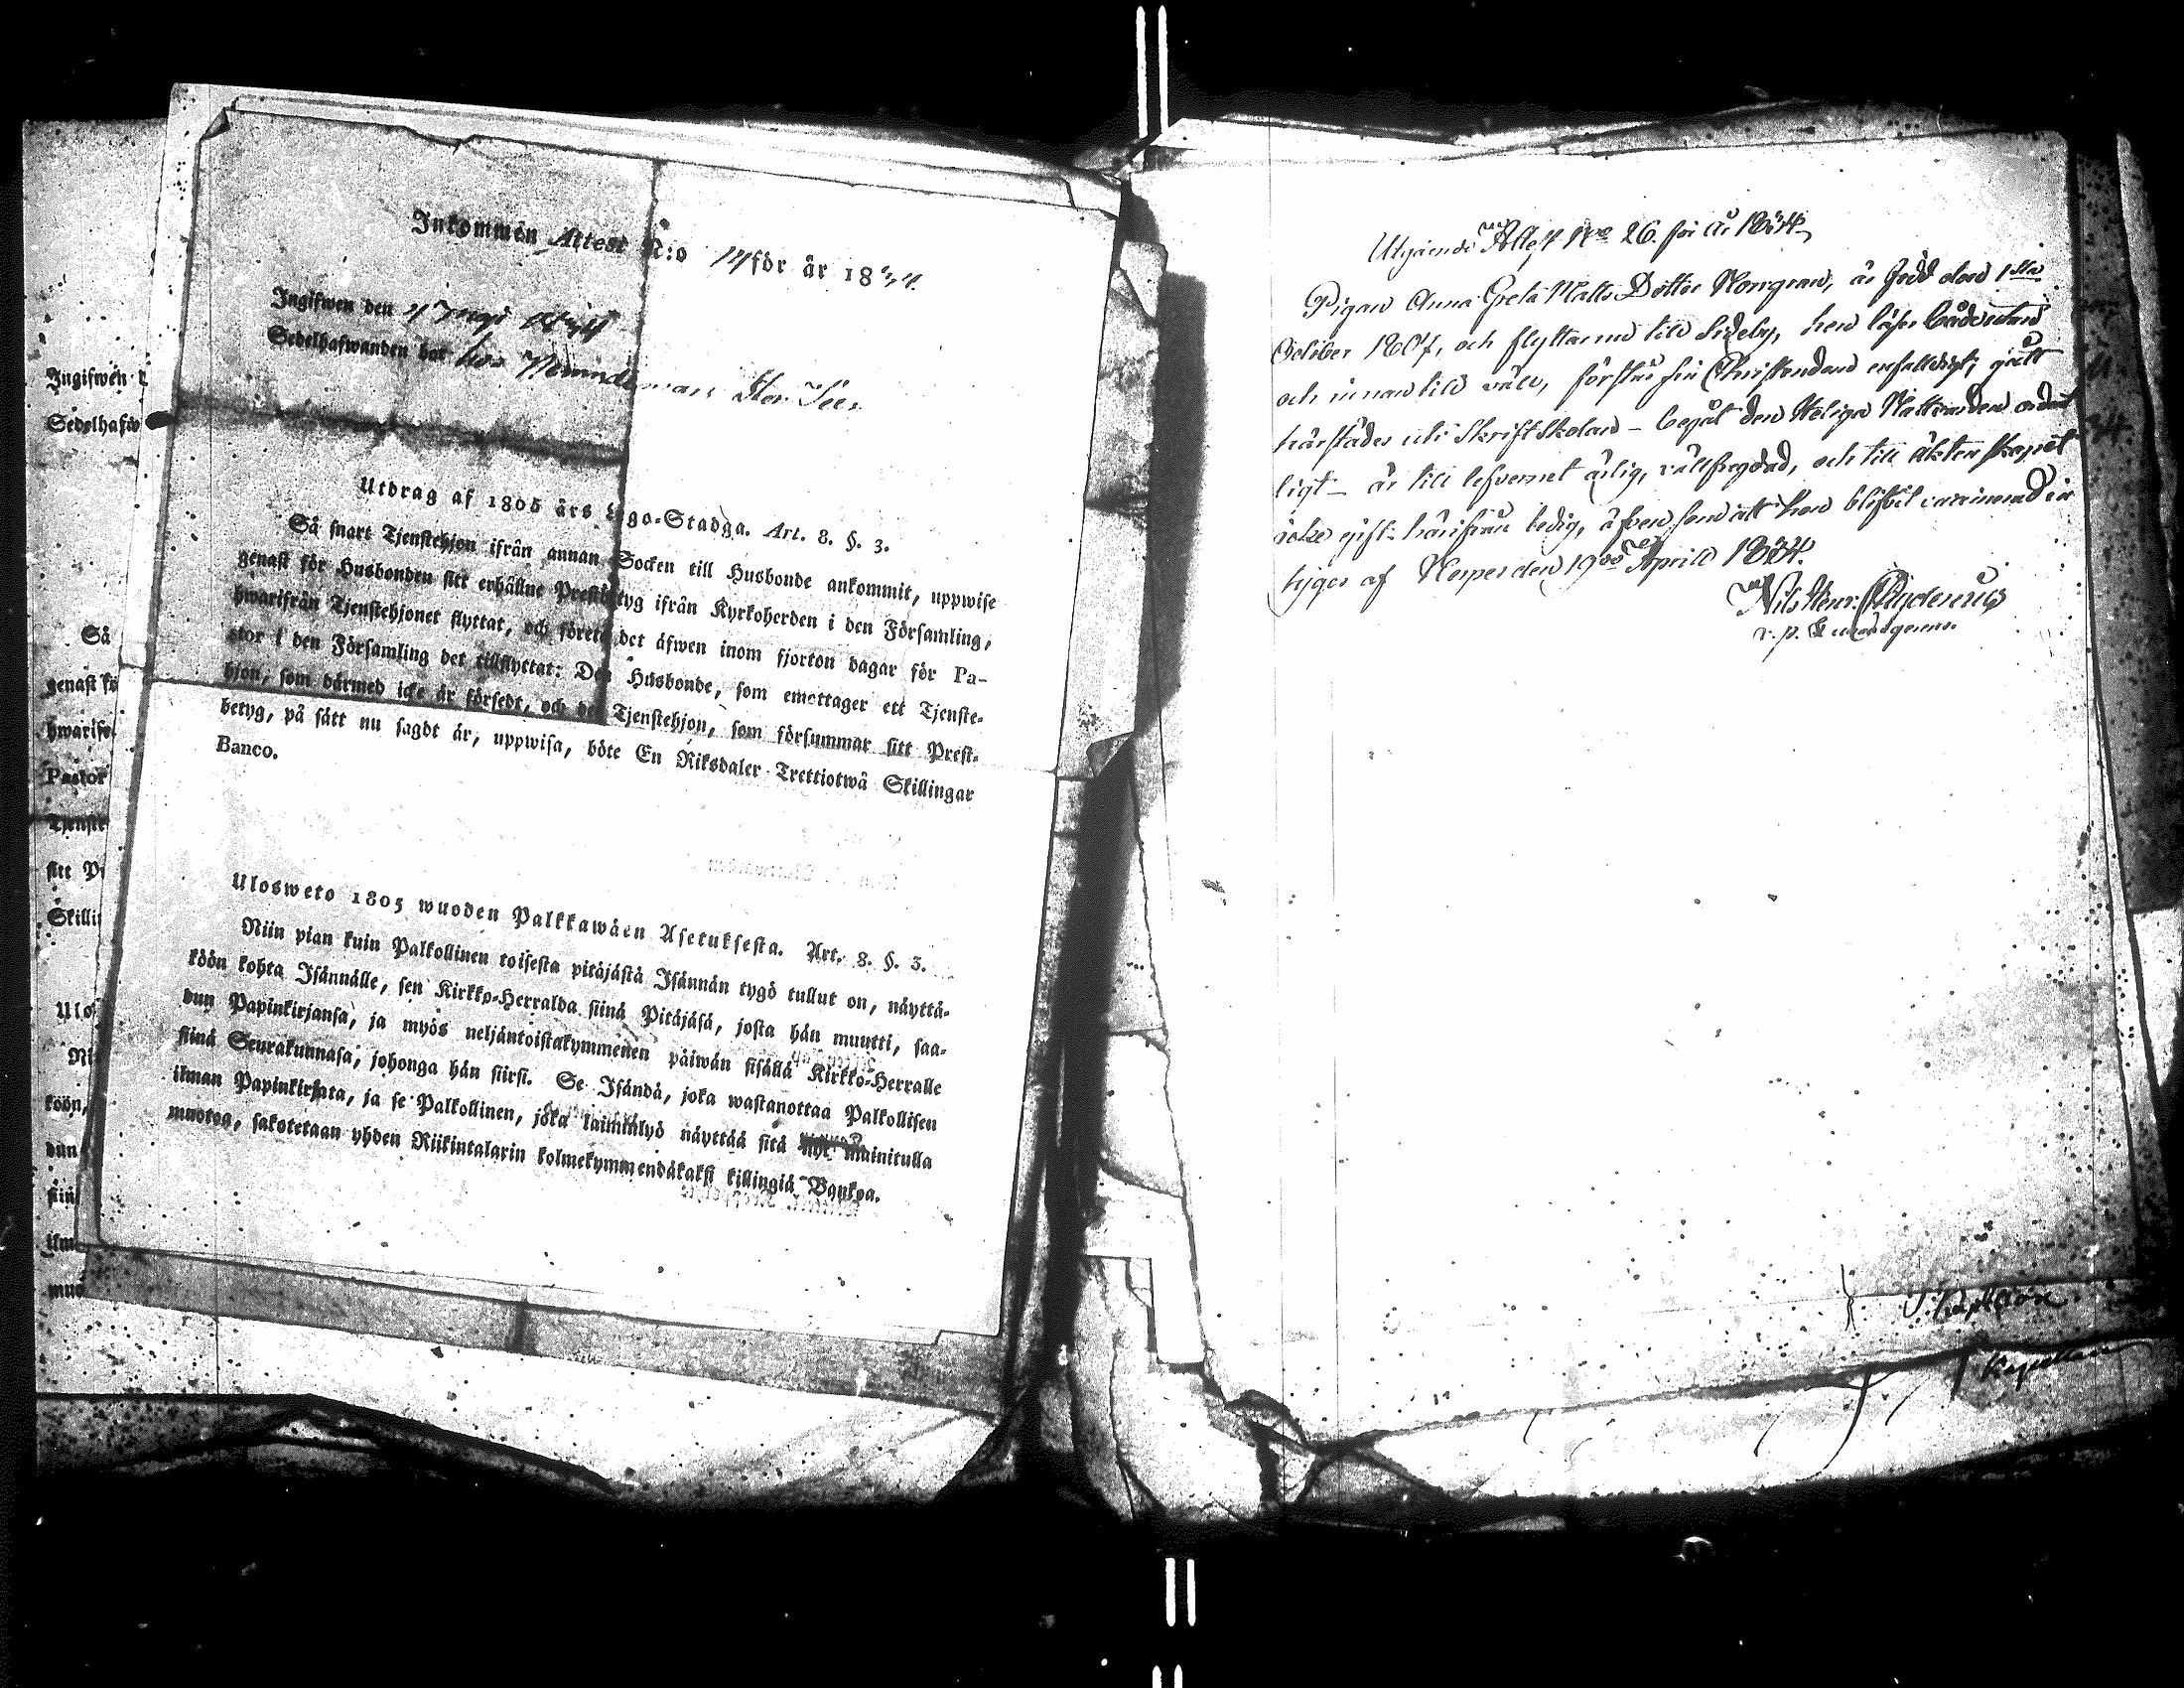 Inkommen Attest N:o 14 för år 1834.
Ingifwen den
Sedelhafwanden bor hos
Utdrag af 1805 års Lego-Stadga. Art. 8. §. 3.
Så snart Tjenstehjon ifrån annan Socken till Husbonde ankommit, uppwise
genast för Husbonden sitt erhållne Prestbetyg ifrån Kyrkoherden i den Församling,
hwarifrån Tjenstehjonet flyttat, och förete det äfwen inom fjorton dagar för Pa-
stor i den Församling det tillflyttat: Den Husbonde, som emottager ett Tjenste-
hjon, som därmed icke är försedt, och det Tjenstehjon, som försummar sitt Prest-
betyg, på sätt nu sagdt är, uppwisa, böte En Riksdaler Trettiotwå Skillingar
Banco.
Ulosweto 1805 wuoden Palkkawäen Asetuksesta. Art. 8. §. 3.
Niin pian kuin Palkollinen toisesta pitäjästä Isännän tygö tullut on, näyttä-
köön kohta Isännälle, sen Kirkko-Herralda siinä Pitäjäsä, josta hän muutti, saa-
dun Papinkirjansa, ja myös neljäntoistakymmenen päiwän sisällä Kirkko-Herralle
siinä Seurakunnasa, johonga hän siirsi. Se Isändä, joka wastanottaa Palkollisen
ilman Papinkirjata, ja se Palkollinen, joka laiminlyö näyttää sitä mainitulla
muotoa, sakotetaan yhden Riikintalarin kolmekymmendäkaksi killingiä Bankoa.
Ingifwen
Sedelhafw
Så
genast fö
hwarifr
Pastor
Tjenste
sitt Pr
Skillin
Ulo
Ni
köön,
dun
siin
ilm
muo
Utgående Attest N:o 26 för år 1834.
Pigan Anna Greta Matts Dotter Norrgran, är född den 1sta
October 1807, och flyttar nu till Sideby, hon läser både utan
och innantill väl, förstår sin Christendom enfaldigt, gått
härstädes uti Skriftskolan - begåt den Heliga Nattvarden ordent
ligt - är till lefvernet ärlig, välfregdad, och till äktenskapet
icke gift - härifrån ledig, äfven som att hon blifvit vaccinerad in
tygar af Kesper den 19de Aprill 1834.
Nils Henr. Chydenius
v. p.
Kapellan